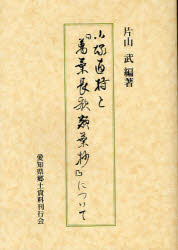 片山 武 編著
小塚直持と
『萬葉長歌類葉抄』について
愛知県郷土資料刊行会